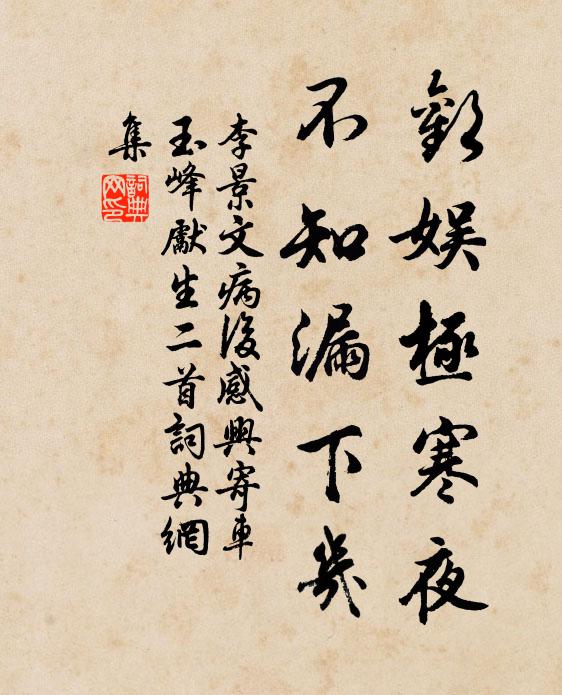 歡娛極寒夜
不知漏下幾
李景文病後感興寄車
玉峰獻生二首詞典網
集
詞典網印